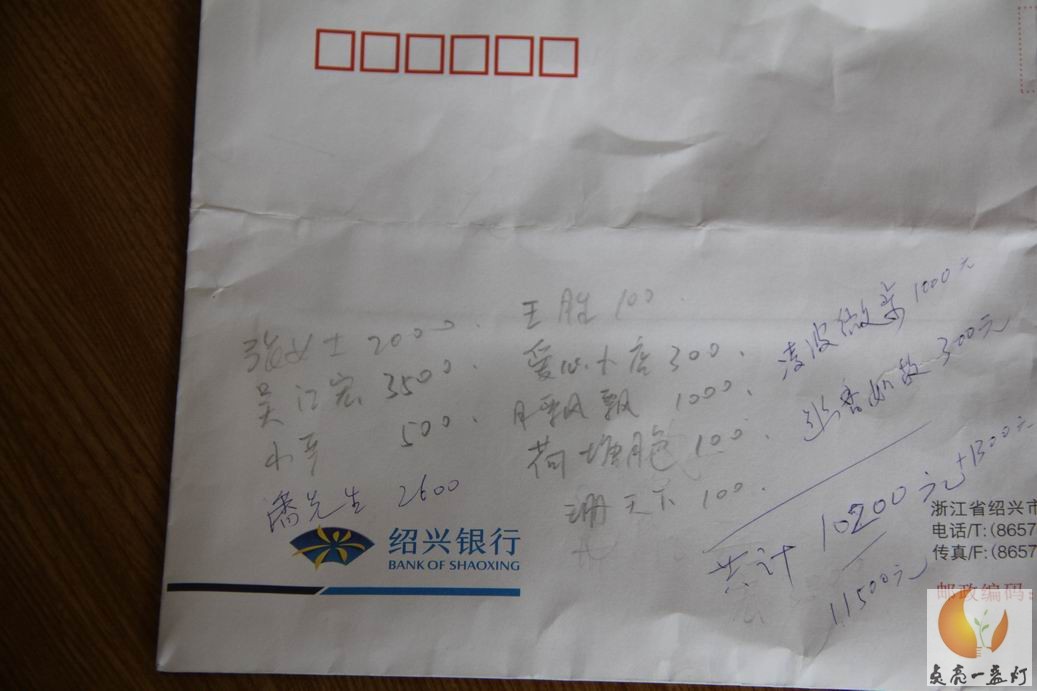 张女士 2000.
吴江宏 3500.
小平 500.
潘先生 2600
王胜 100.
爱心小店 300.
月飘飘 1000.
荷塘月色 100.
珊天下 100.
凌波微步 1000元
如故 300元
共计 10200元+1300元
11500元
绍兴银行
BANK OF SHAOXING
浙江省绍兴市
电话/T: (8657
传真/F: (8657
邮政编码:
点亮一盏灯